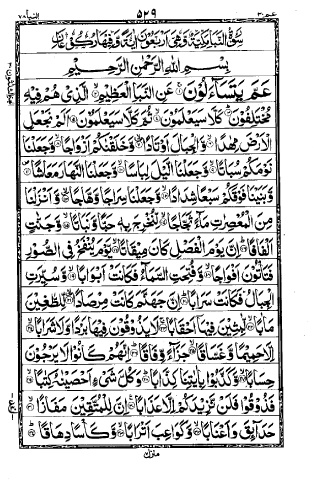 عم ٣٠ ٥٢٩ النبا ٧٨
سورة النبا مكية وهی اربعون اية وفيها ركوعان
بِسْمِ اللّٰهِ الرَّحْمٰنِ الرَّحِيْمِ
عَمَّ يَتَسَآءَلُوْنَ ۝ عَنِ النَّبَاِ الْعَظِيْمِ ۝ الَّذِيْ هُمْ فِيْهِ
مُخْتَلِفُوْنَ ۝ كَلَّا سَيَعْلَمُوْنَ ۝ ثُمَّ كَلَّا سَيَعْلَمُوْنَ ۝ اَلَمْ نَجْعَلِ
الْاَرْضَ مِهٰدًا ۝ وَّالْجِبَالَ اَوْتَادًا ۝ وَّخَلَقْنٰكُمْ اَزْوَاجًا ۝ وَّجَعَلْنَا
نَوْمَكُمْ سُبَاتًا ۝ وَّجَعَلْنَا الَّيْلَ لِبَاسًا ۝ وَّجَعَلْنَا النَّهَارَ مَعَاشًا ۝
وَّبَنَيْنَا فَوْقَكُمْ سَبْعًا شِدَادًا ۝ وَّجَعَلْنَا سِرَاجًا وَّهَّاجًا ۝ وَّاَنْزَلْنَا
مِنَ الْمُعْصِرٰتِ مَآءً ثَجَّاجًا ۝ لِّنُخْرِجَ بِهٖ حَبًّا وَّنَبَاتًا ۝ وَّجَنّٰتٍ
اَلْفَافًا ۝ اِنَّ يَوْمَ الْفَصْلِ كَانَ مِيْقَاتًا ۝ يَّوْمَ يُنْفَخُ فِي الصُّوْرِ
فَتَاْتُوْنَ اَفْوَاجًا ۝ وَّفُتِحَتِ السَّمَآءُ فَكَانَتْ اَبْوَابًا ۝ وَّسُيِّرَتِ
الْجِبَالُ فَكَانَتْ سَرَابًا ۝ اِنَّ جَهَنَّمَ كَانَتْ مِرْصَادًا ۝ لِّلطَّٰغِيْنَ
مَاٰبًا ۝ لّٰبِثِيْنَ فِيْهَآ اَحْقَابًا ۝ لَا يَذُوْقُوْنَ فِيْهَا بَرْدًا وَّلَا شَرَابًا ۝
اِلَّا حَمِيْمًا وَّغَسَّاقًا ۝ جَزَآءً وِّفَاقًا ۝ اِنَّهُمْ كَانُوْا لَا يَرْجُوْنَ
حِسَابًا ۝ وَّكَذَّبُوْا بِاٰيٰتِنَا كِذَّابًا ۝ وَكُلَّ شَيْءٍ اَحْصَيْنٰهُ كِتٰبًا ۝
فَذُوْقُوْا فَلَنْ نَّزِيْدَكُمْ اِلَّا عَذَابًا ۝ اِنَّ لِلْمُتَّقِيْنَ مَفَازًا ۝
حَدَآئِقَ وَاَعْنَابًا ۝ وَّكَوَاعِبَ اَتْرَابًا ۝ وَّكَاْسًا دِهَاقًا ۝
منزل